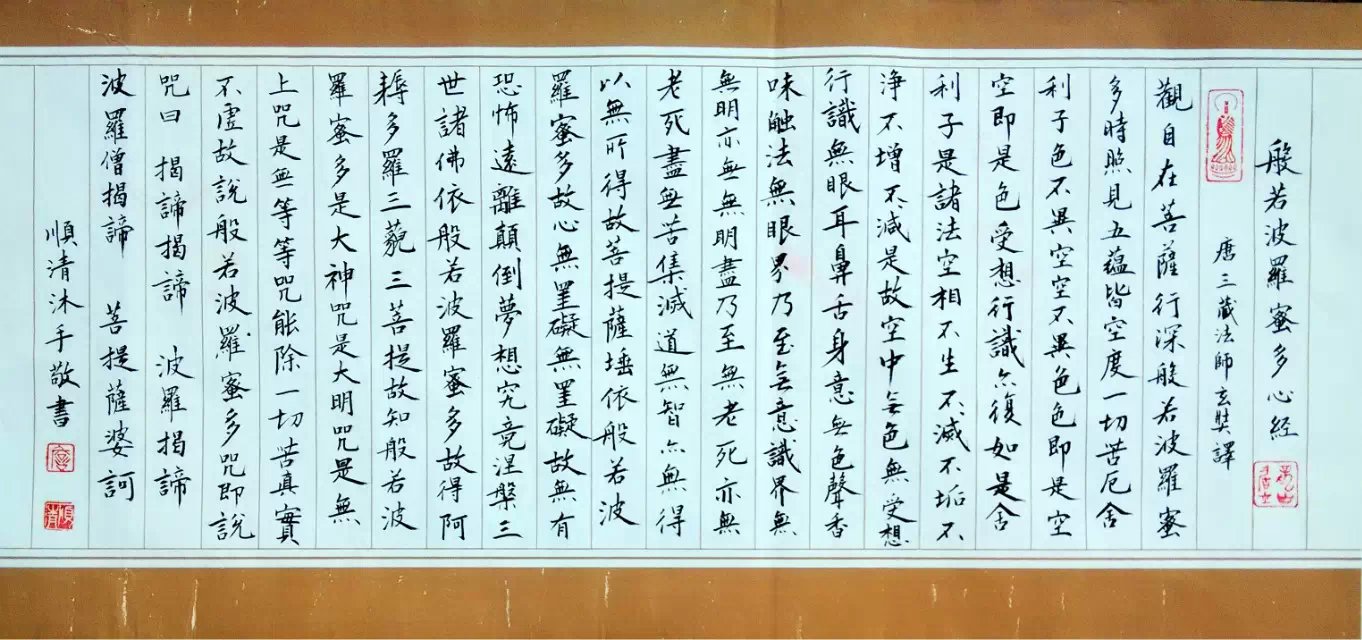 般若波羅蜜多心经
唐三藏法師玄奘譯
觀自在菩薩行深般若波羅蜜
多時照見五蕴皆空度一切苦厄舍
利子色不異空空不異色色即是空
空即是色受想行識亦復如是舍
利子是諸法空相不生不滅不垢不
净不增不減是故空中無色無受想
行識無眼耳鼻舌身意無色聲香
味触法無眼界乃至無意識界無
無明亦無無明盡乃至無老死亦無
老死盡無苦集滅道無智亦無得
以無所得故菩提薩埵依般若波
羅蜜多故心無罣礙無罣礙故無有
恐怖遠離顛倒夢想究竟涅槃三
世諸佛依般若波羅蜜多故得阿
耨多羅三藐三菩提故知般若波
羅蜜多是大神咒是大明咒是無
上咒是無等等咒能除一切苦真實
不虛故說般若波羅蜜多咒即說
咒曰 揭諦揭諦 波羅揭諦
波羅僧揭諦 菩提薩婆訶
順清沐手敬書
順清